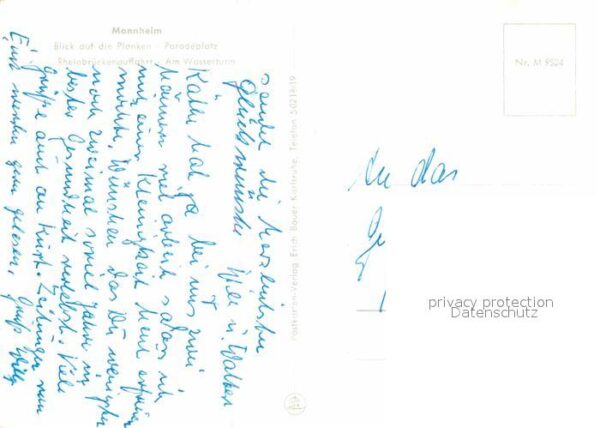 Mannheim
Blick auf die Planken - Paradeplatz
Rheinbrückenauffahrt - Am Wasserturm
Nr. M 9524
Postkarten-Verlag Erich Bauer Karlsruhe, Telefon
sende die herzlichsten
Glückwünsche Willi u. Walter
Käthe hat ja bei uns zwei
Männern viel arbeit sodass ich
mit einer Kleinigkeit
möchte, Wünschen das Du wenigstens
noch zweimal soviel Jahre in
bester Gesundheit verlebst. Viele
Grüße auch an Kurt. Zeitungen von
Euch werden gern gelesen. Gruß Willy
An das
privacy protection
Datenschutz